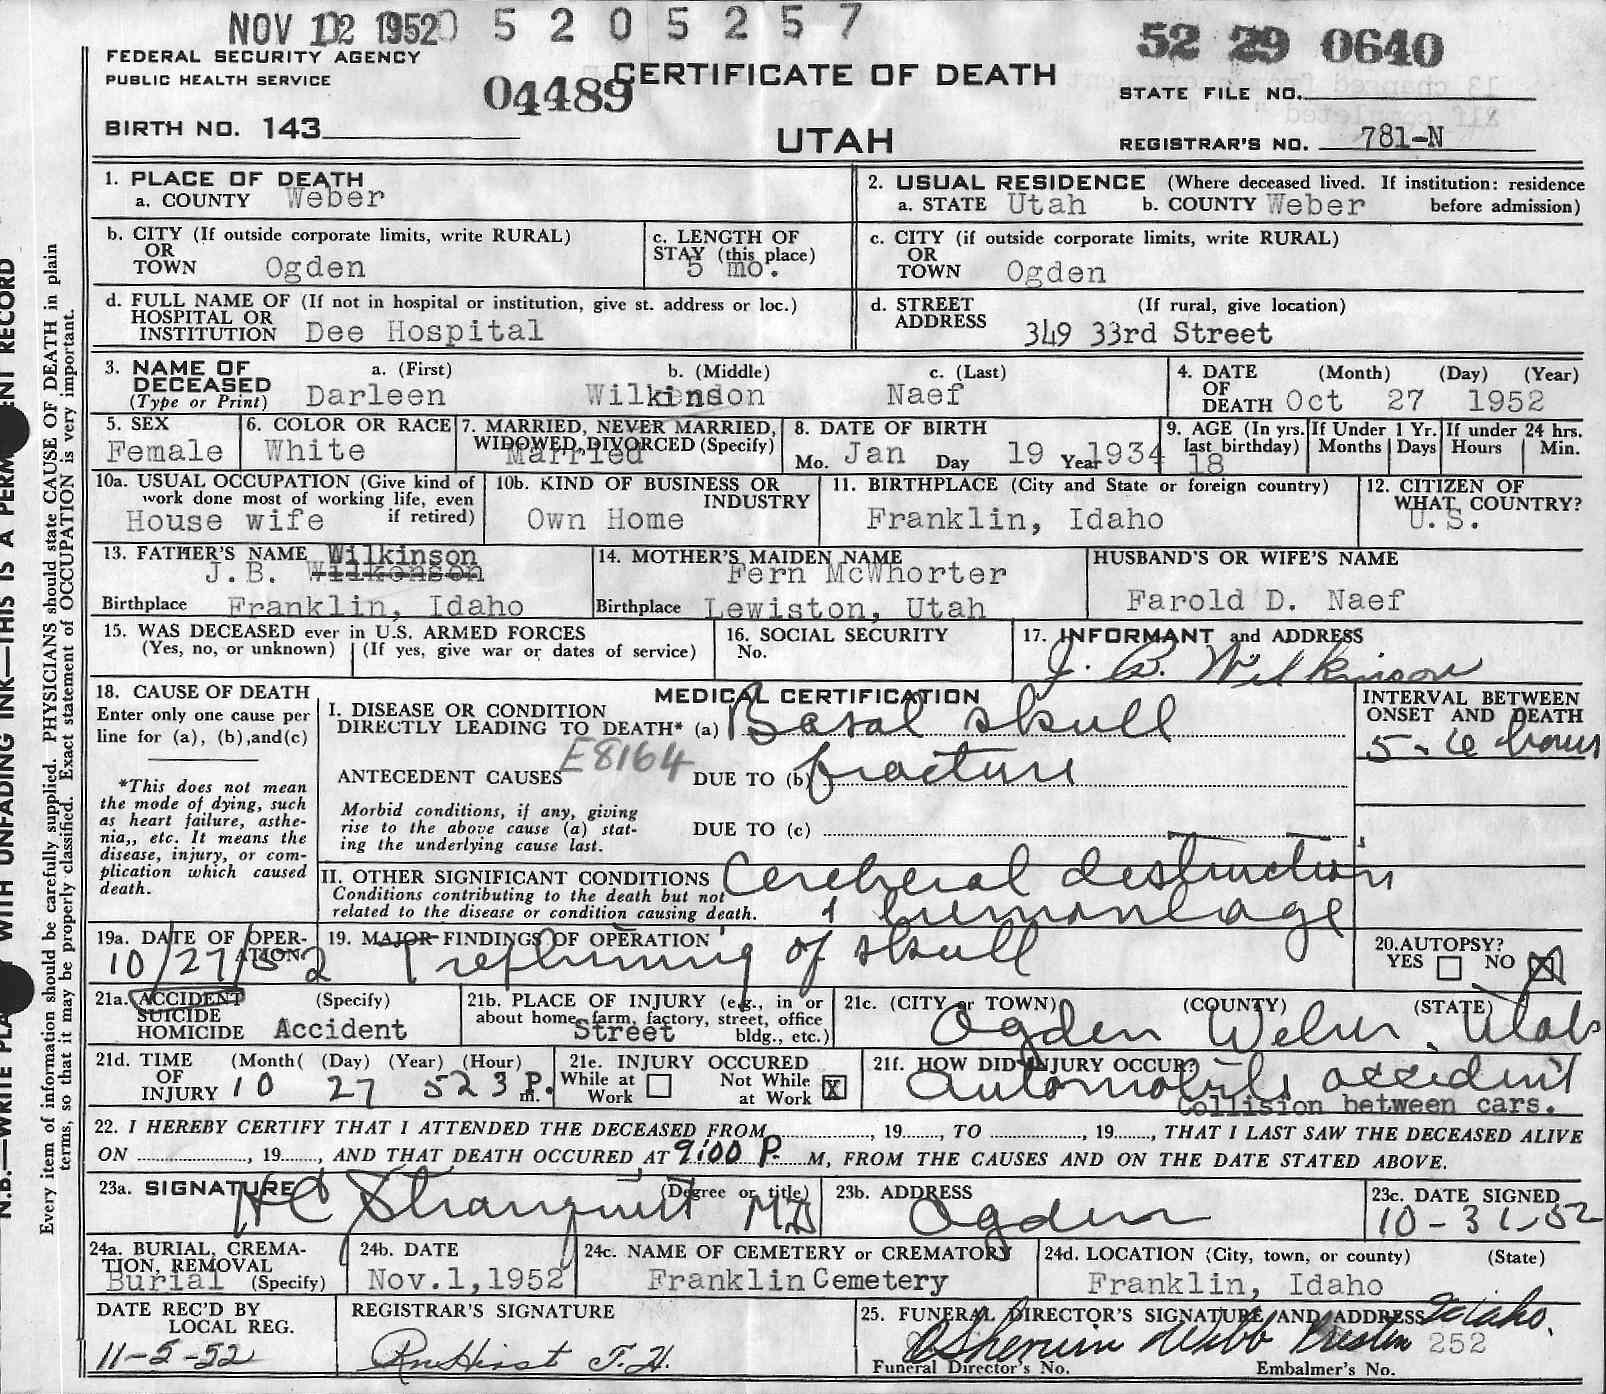 NOV 12 1952 5 2 0 5 2 5 7
52 29 0640
FEDERAL SECURITY AGENCY
PUBLIC HEALTH SERVICE
04489
CERTIFICATE OF DEATH
STATE FILE NO.
BIRTH NO. 143
UTAH
REGISTRAR'S NO. 781-N
1. PLACE OF DEATH
a. COUNTY Weber
2. USUAL RESIDENCE (Where deceased lived. If institution: residence
a. STATE Utah b. COUNTY Weber before admission)
b. CITY (If outside corporate limits, write RURAL)
OR
TOWN Ogden
c. LENGTH OF
STAY (this place)
5 mo.
c. CITY (if outside corporate limits, write RURAL)
OR
TOWN Ogden
d. FULL NAME OF (If not in hospital or institution, give st. address or loc.)
HOSPITAL OR
INSTITUTION Dee Hospital
d. STREET (If rural, give location)
ADDRESS 349 33rd Street
3. NAME OF a. (First) b. (Middle) c. (Last)
DECEASED
(Type or Print) Darleen Wilkinson Naef
4. DATE (Month) (Day) (Year)
OF
DEATH Oct 27 1952
5. SEX
Female
6. COLOR OR RACE
White
7. MARRIED, NEVER MARRIED,
WIDOWED, DIVORCED (Specify)
Married
8. DATE OF BIRTH
Mo. Jan Day 19 Year 1934
9. AGE (In yrs.
last birthday)
18
If Under 1 Yr.
Months Days
If under 24 hrs.
Hours Min.
10a. USUAL OCCUPATION (Give kind of
work done most of working life, even
House wife if retired)
10b. KIND OF BUSINESS OR
INDUSTRY
Own Home
11. BIRTHPLACE (City and State or foreign country)
Franklin, Idaho
12. CITIZEN OF
WHAT COUNTRY?
U.S.
13. FATHER'S NAME Wilkinson
J.B. Wilkonson
Birthplace Franklin, Idaho
14. MOTHER'S MAIDEN NAME
Fern McWhorter
Birthplace Lewiston, Utah
HUSBAND'S OR WIFE'S NAME
Farold D. Naef
15. WAS DECEASED ever in U.S. ARMED FORCES
(Yes, no, or unknown) (If yes, give war or dates of service)
16. SOCIAL SECURITY
No.
17. INFORMANT and ADDRESS
J. B. Wilkinson
18. CAUSE OF DEATH
Enter only one cause per
line for (a), (b), and (c)
*This does not mean
the mode of dying, such
as heart failure, asthe-
nia,, etc. It means the
disease, injury, or com-
plication which caused
death.
MEDICAL CERTIFICATION
I. DISEASE OR CONDITION
DIRECTLY LEADING TO DEATH* (a) Basal skull
E8164
ANTECEDENT CAUSES DUE TO (b) fracture
Morbid conditions, if any, giving
rise to the above cause (a) stat-
ing the underlying cause last.
DUE TO (c)
INTERVAL BETWEEN
ONSET AND DEATH
5-6 hours
II. OTHER SIGNIFICANT CONDITIONS Cerebral destruction
Conditions contributing to the death but not
related to the disease or condition causing death.
& hemorrhage
19a. DATE OF OPER-
ATION
10/27/52
19. MAJOR FINDINGS OF OPERATION
Trephining of skull
20. AUTOPSY?
YES NO X
21a. ACCIDENT (Specify)
SUICIDE
HOMICIDE Accident
21b. PLACE OF INJURY (e.g., in or
about home, farm, factory, street, office
Street bldg., etc.)
21c. (CITY or TOWN) (COUNTY) (STATE)
Ogden Weber, Utah
21d. TIME (Month) (Day) (Year) (Hour)
OF
INJURY 10 27 52 3 P. m.
21e. INJURY OCCURED
While at Work Not While at Work X
21f. HOW DID INJURY OCCUR?
Automobile accident
Collision between cars.
22. I HEREBY CERTIFY THAT I ATTENDED THE DECEASED FROM, 19, TO, 19, THAT I LAST SAW THE DECEASED ALIVE
ON, 19, AND THAT DEATH OCCURED AT 9:00 P. M, FROM THE CAUSES AND ON THE DATE STATED ABOVE.
23a. SIGNATURE (Degree or title)
HC Stranquist MD
23b. ADDRESS
Ogden
23c. DATE SIGNED
10-31-52
24a. BURIAL, CREMA-
TION, REMOVAL
Burial (Specify)
24b. DATE
Nov.1,1952
24c. NAME OF CEMETERY or CREMATORY
Franklin Cemetery
24d. LOCATION (City, town, or county) (State)
Franklin, Idaho
DATE REC'D BY
LOCAL REG.
11-5-52
REGISTRAR'S SIGNATURE
25. FUNERAL DIRECTOR'S SIGNATURE AND ADDRESS Idaho.
Sherwin Webb Preston 252
Funeral Director's No. Embalmer's No.
Every item of information should be carefully supplied. PHYSICIANS should state CAUSE OF DEATH in plain
terms, so that it may be properly classified. Exact statement of OCCUPATION is very important.